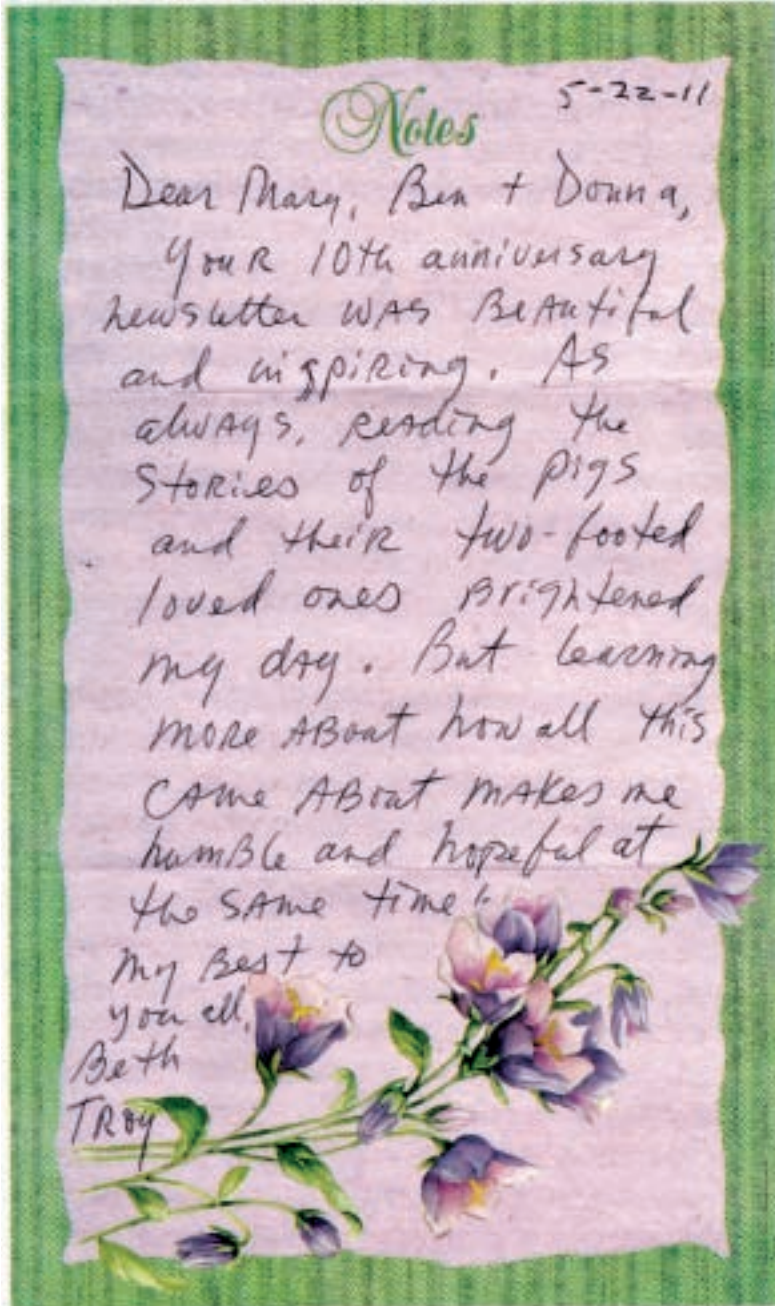 Notes
5-22-11
Dear Mary, Ben + Donna,
Your 10th anniversary
newsletter was Beautiful
and inspiring. As
always, reading the
stories of the pigs
and their two-footed
loved ones Brightened
my day. But learning
more ABout how all this
came ABout makes me
humBle and hopeful at
the same time!
My Best to
you all,
Beth
Troy